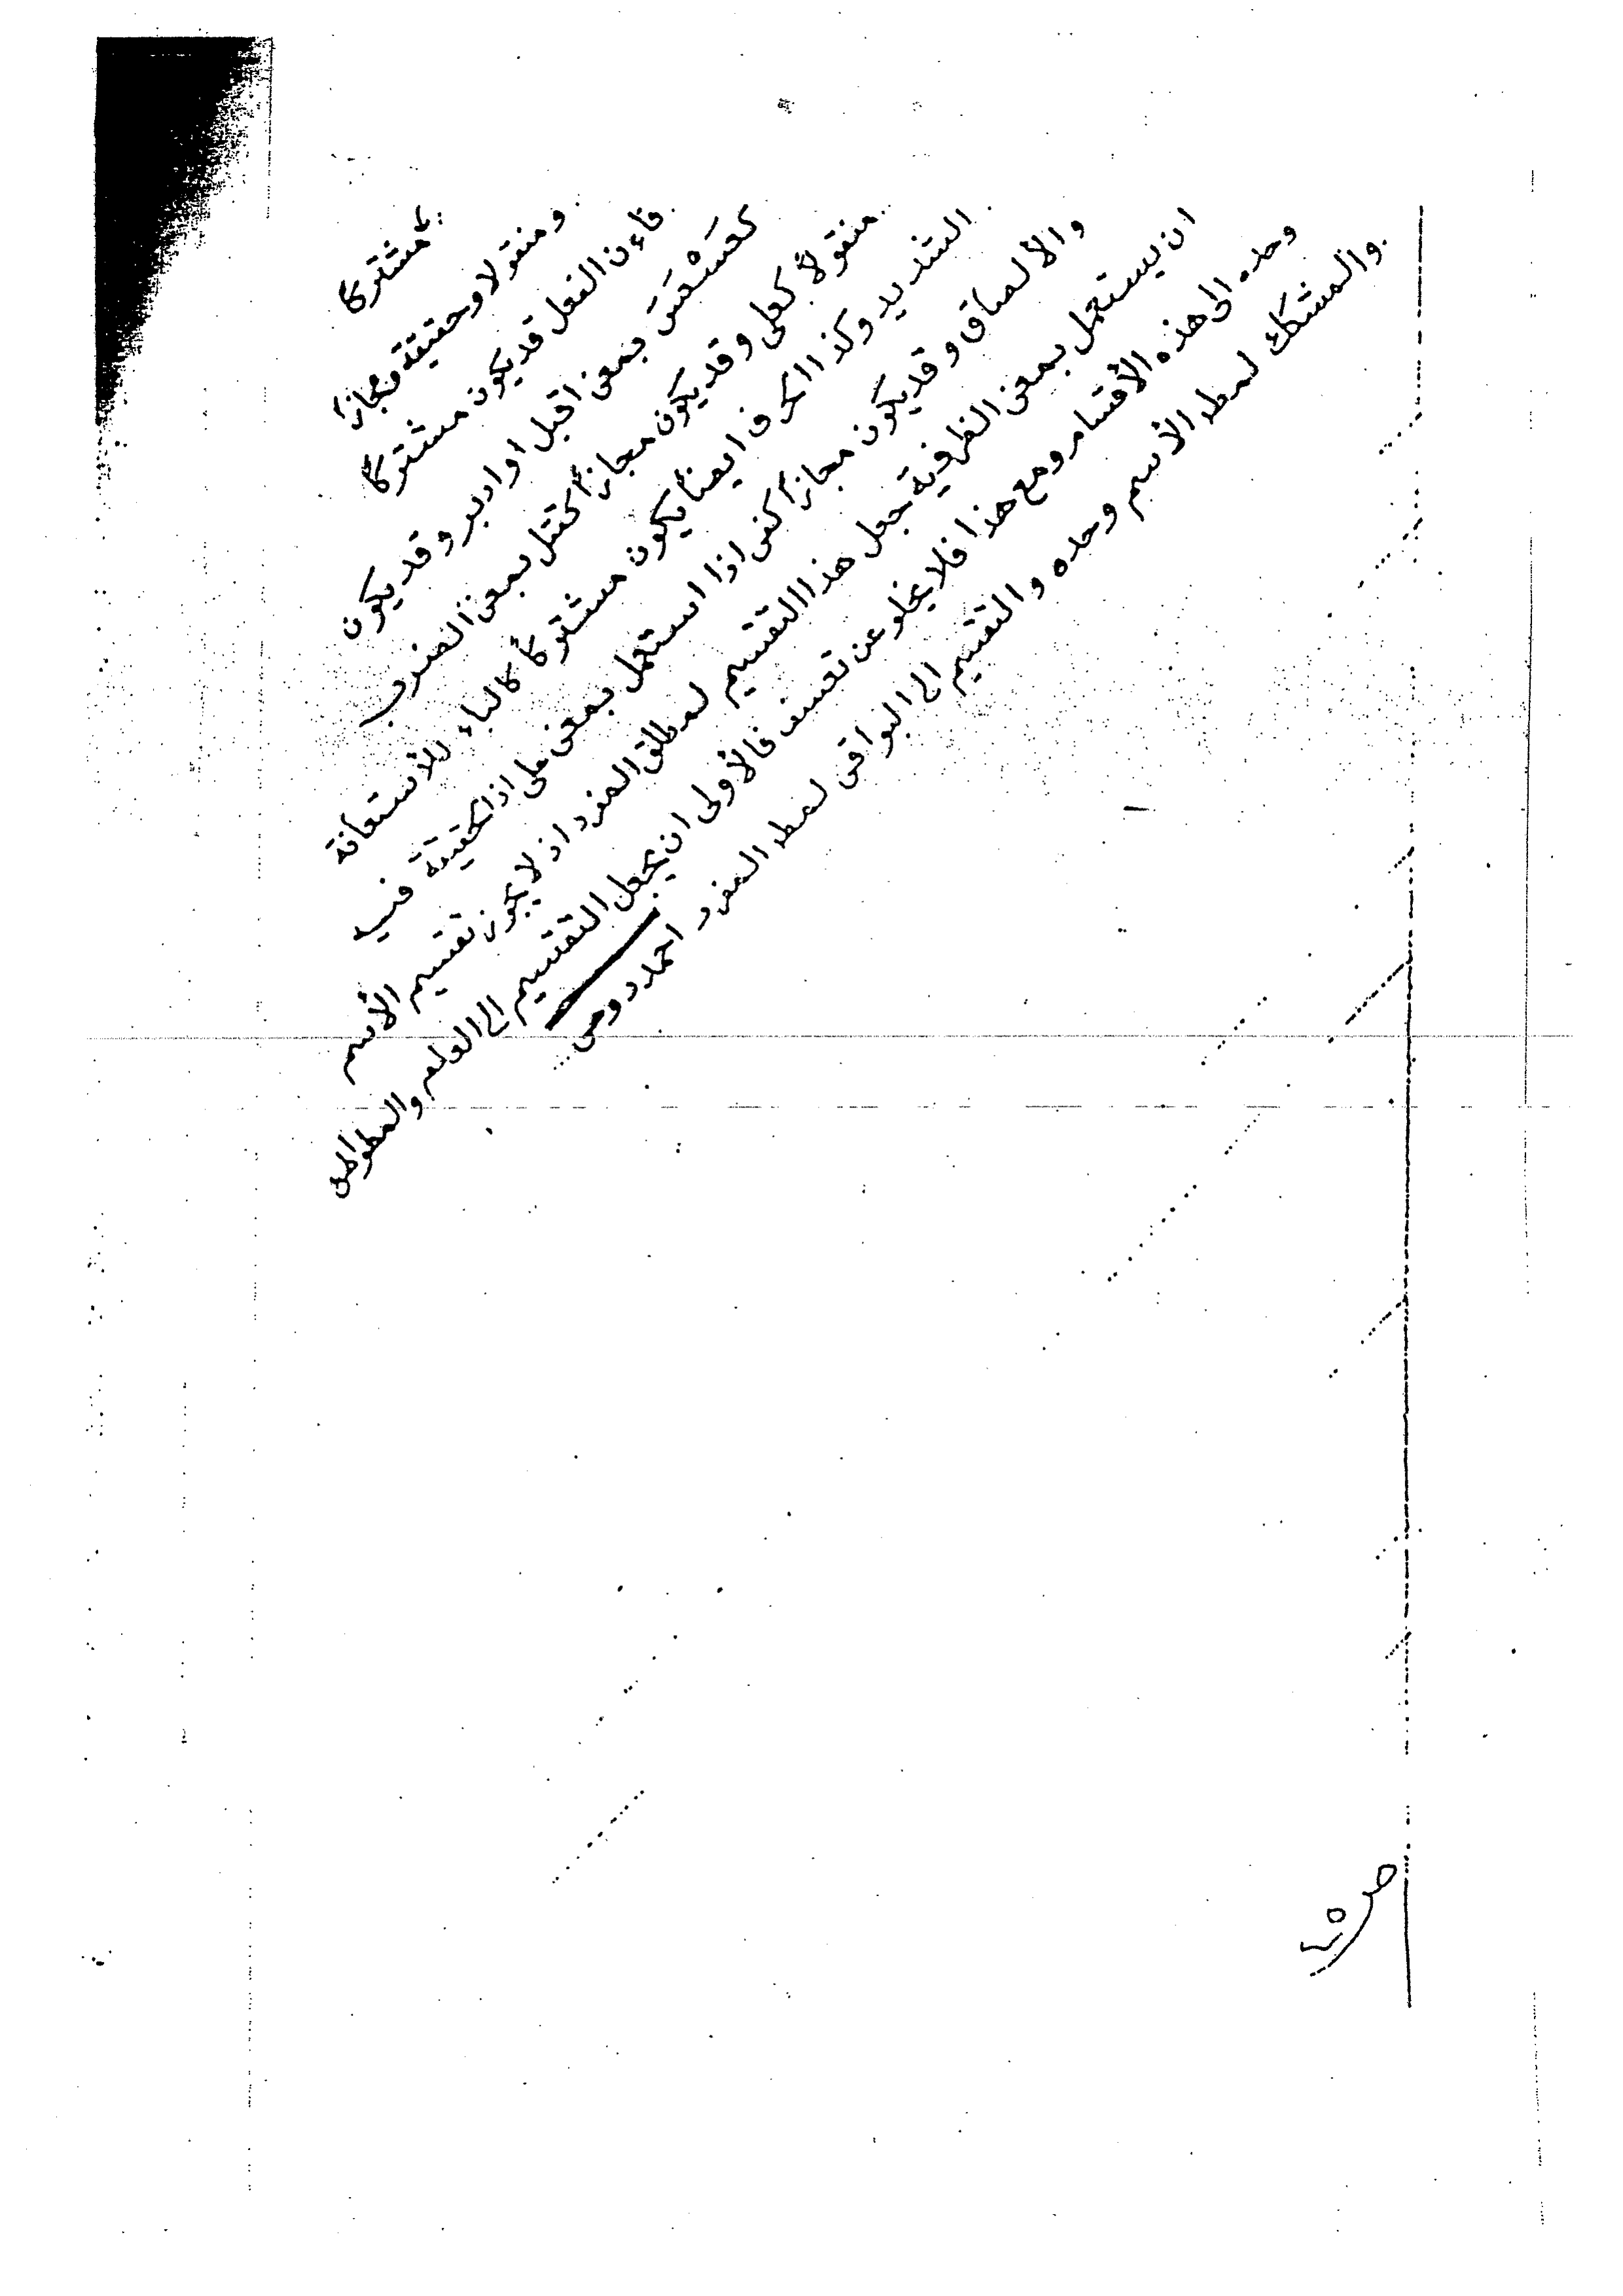 مشتركًا
ومنقولا وحقيقة ومجازًا
فاءن الفعل قد يكون مشتركًا
كعَسْعَسَ بمعنى اقبل او ادبر وقد يكون
منقولاً كصلى وقد يكون مجازًا كقتل بمعنى الضرب
الشديد وكذا الحرف ايضًا يكون مشتركًا كالباء للأستعانة
والألصاق وقد يكون مجازًا كفى اذا استعمل بمعنى على اذ الحقيقة فيه
ان يستعمل بمعنى الظرفية جعل هذا التقسيم لمطلق المفرد اذ لا يجوز تقسيم الأسم
وحده الى هذه الأقسام ومع هذا فلا يخلو عن تعسف فالأولى ان يجعل التقسيم الى العلم والمتواطى
والمشكك لمط الأسم وحده والتقسيم الى البواقى لمط المفرد احمد
ص